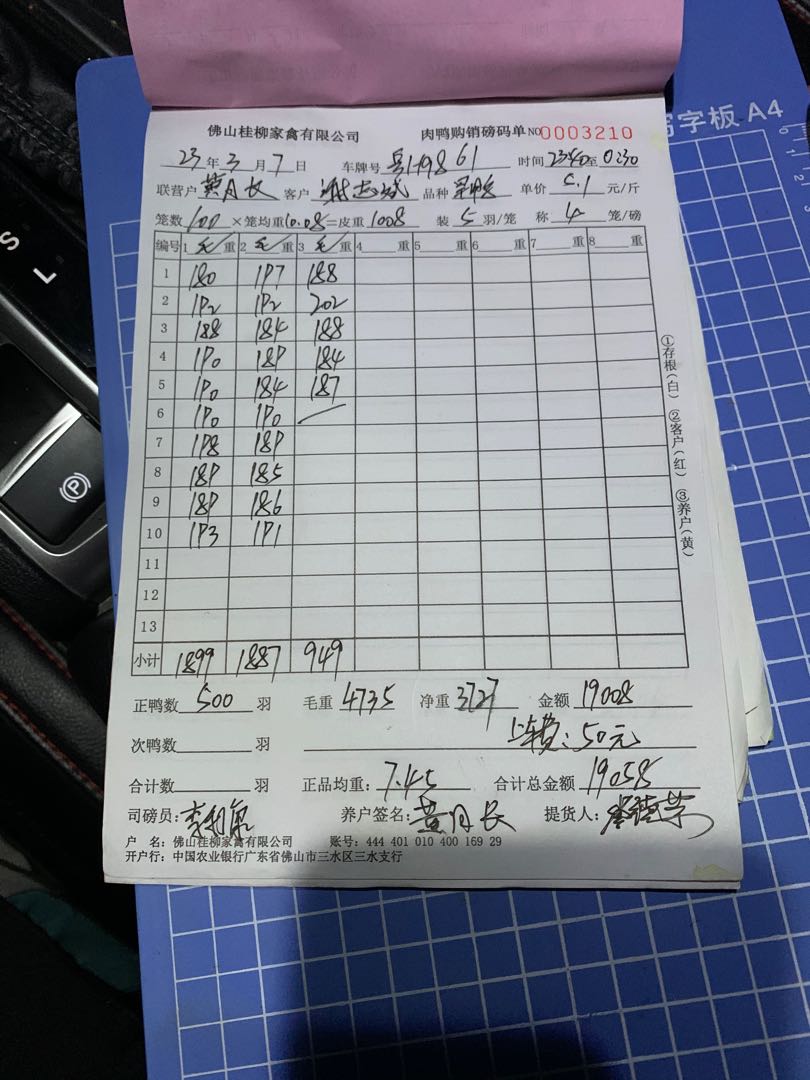 写字板 A4
佛山桂柳家禽有限公司 肉鸭购销磅码单 NO 0003210
23 年 3 月 7 日 车牌号 时间 23:40 至 0:30
联营户 黄月长 客户 品种 单价 5.1 元/斤
笼数 100 ×笼均重 10.08 =皮重 1008 装 5 羽/笼 称 4 笼/磅
编号 1 毛 重 2 毛 重 3 毛 重 4 重 5 重 6 重 7 重 8 重
1 180 197 188
2 192 192 202
3 188 184 188
4 190 189 184
5 190 184 187
6 190 190 /
7 198 189
8 189 185
9 189 186
10 193 191
11
12
13
小计 1899 1887 949
①存根(白) ②客户(红) ③养户(黄)
正鸭数 500 羽 毛重 4735 净重 3727 金额 19008
次鸭数 羽 上车费:50元
合计数 羽 正品均重: 7.45 合计总金额 19058
司磅员: 养户签名: 黄月长 提货人:
户 名: 佛山桂柳家禽有限公司 账号: 444 401 010 400 169 29
开户行: 中国农业银行广东省佛山市三水区三水支行
S
L
P